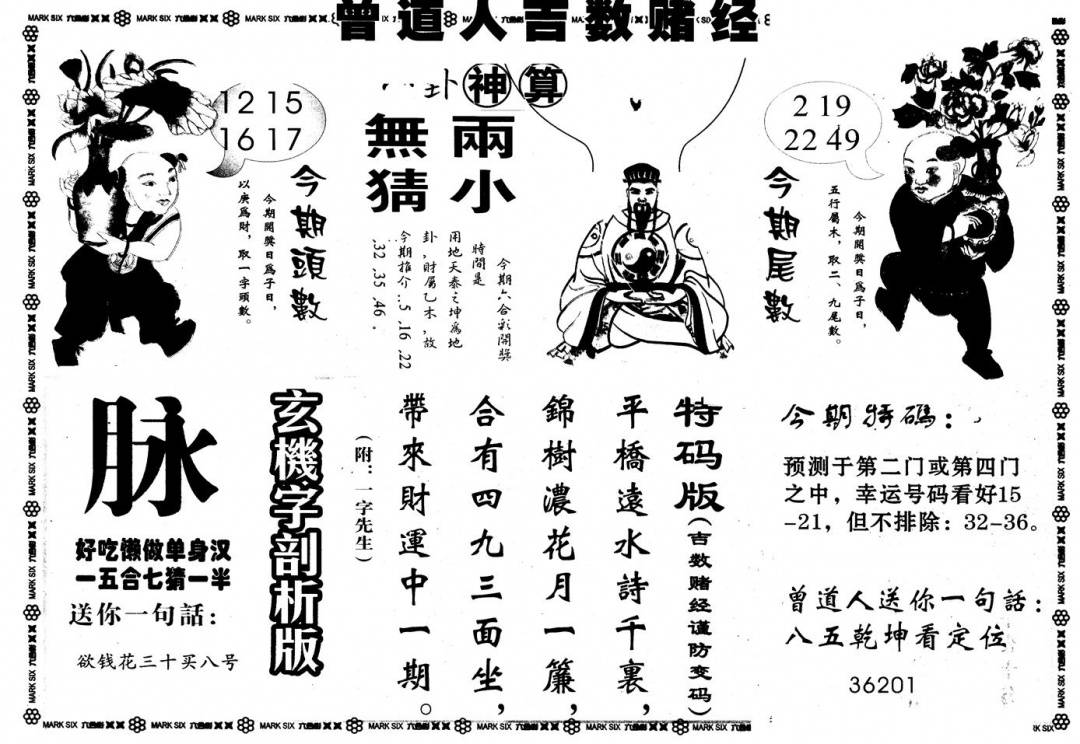 曾道人吉数赌经
MARK SIX 六合彩
卦神算
無兩
猜小
12 15
16 17
今期頭數
今期開獎日為子日，
以庚為財，取一字頭數。
今期六合彩開獎
時間是
用地天泰之坤為地
卦，財屬乙木，故
今期推介：5.16.22
.32.35.46.
2 19
22 49
今期尾數
今期開獎日為子日，
五行屬木，取二、九尾數。
脉
好吃懒做单身汉
一五合七猜一半
送你一句話：
欲钱花三十买八号
玄機字剖析版
（附：一字先生）
特码版（吉数赌经谨防变码）
平橋遠水詩千裏，
錦樹濃花月一簾，
合有四九三面坐，
帶來財運中一期。
今期特碼：
预测于第二门或第四门
之中，幸运号码看好15
-21，但不排除：32-36。
曾道人送你一句話：
八五乾坤看定位
36201